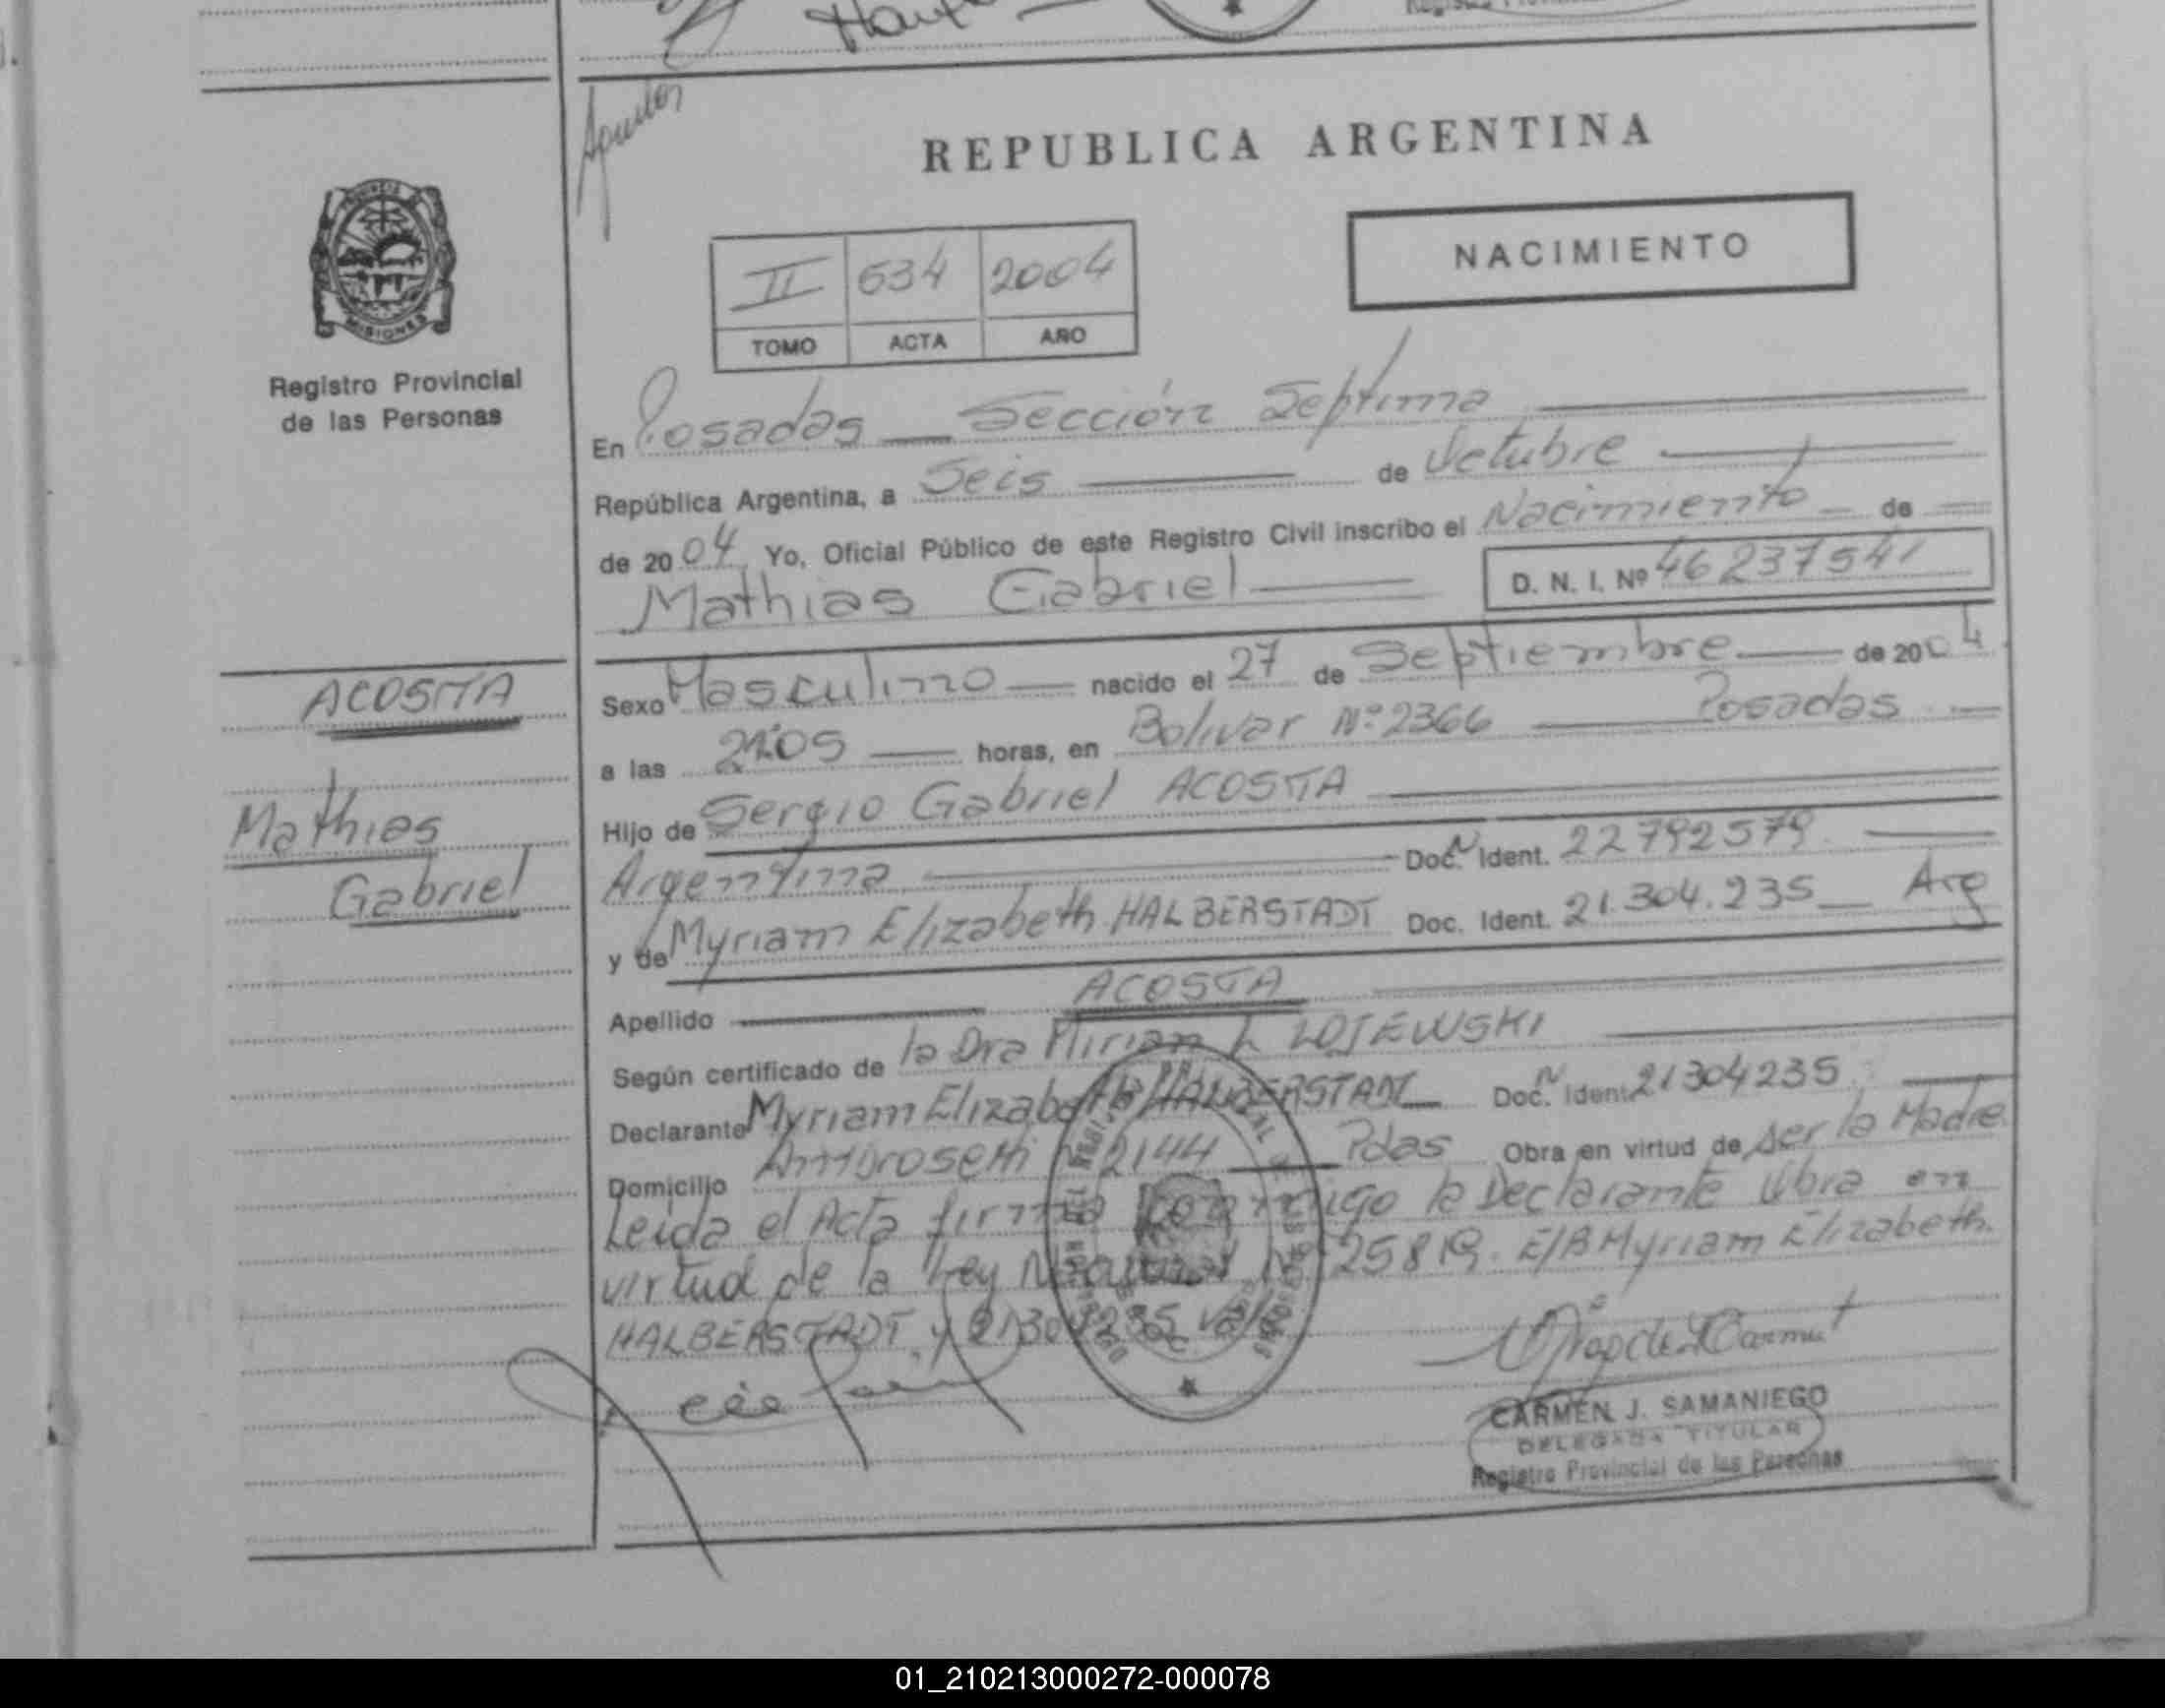 REPUBLICA ARGENTINA
NACIMIENTO
II 634 2004
TOMO ACTA AÑO
MISIONES
Registro Provincial
de las Personas
En Posadas Sección Septima
República Argentina, a Seis de Octubre
de 2004 Yo, Oficial Público de este Registro Civil inscribo el Nacimiento de
Mathias Gabriel D. N. I. Nº 46237541
ACOSTA
Mathias
Gabriel
Sexo Masculino nacido el 27 de Septiembre de 2004
a las 21:05 horas, en Bolivar Nº 2366 Posadas
Hijo de Sergio Gabriel ACOSTA
Argentina Doc. Ident. 22792579
y de Myriam Elizabeth HALBERSTADT Doc. Ident. 21.304.235 Arg
Apellido ACOSTA
Según certificado de la Dra Mirian L LOJEWSKI
Declarante Myriam Elizabeth HALBERSTADT Doc. Ident 21304235
Domicilio Ambrosetti Nº 2144 Pdas Obra en virtud de ser la Madre
Leida el Acta firma conmigo la Declarante Obra en
virtud de la Ley Nacional Nº 25819. E/B Myriam Elizabeth
HALBERSTADT, y 21304235 vale
CARMEN J. SAMANIEGO
DELEGADA TITULAR
Registro Provincial de las Personas
01_210213000272-000078